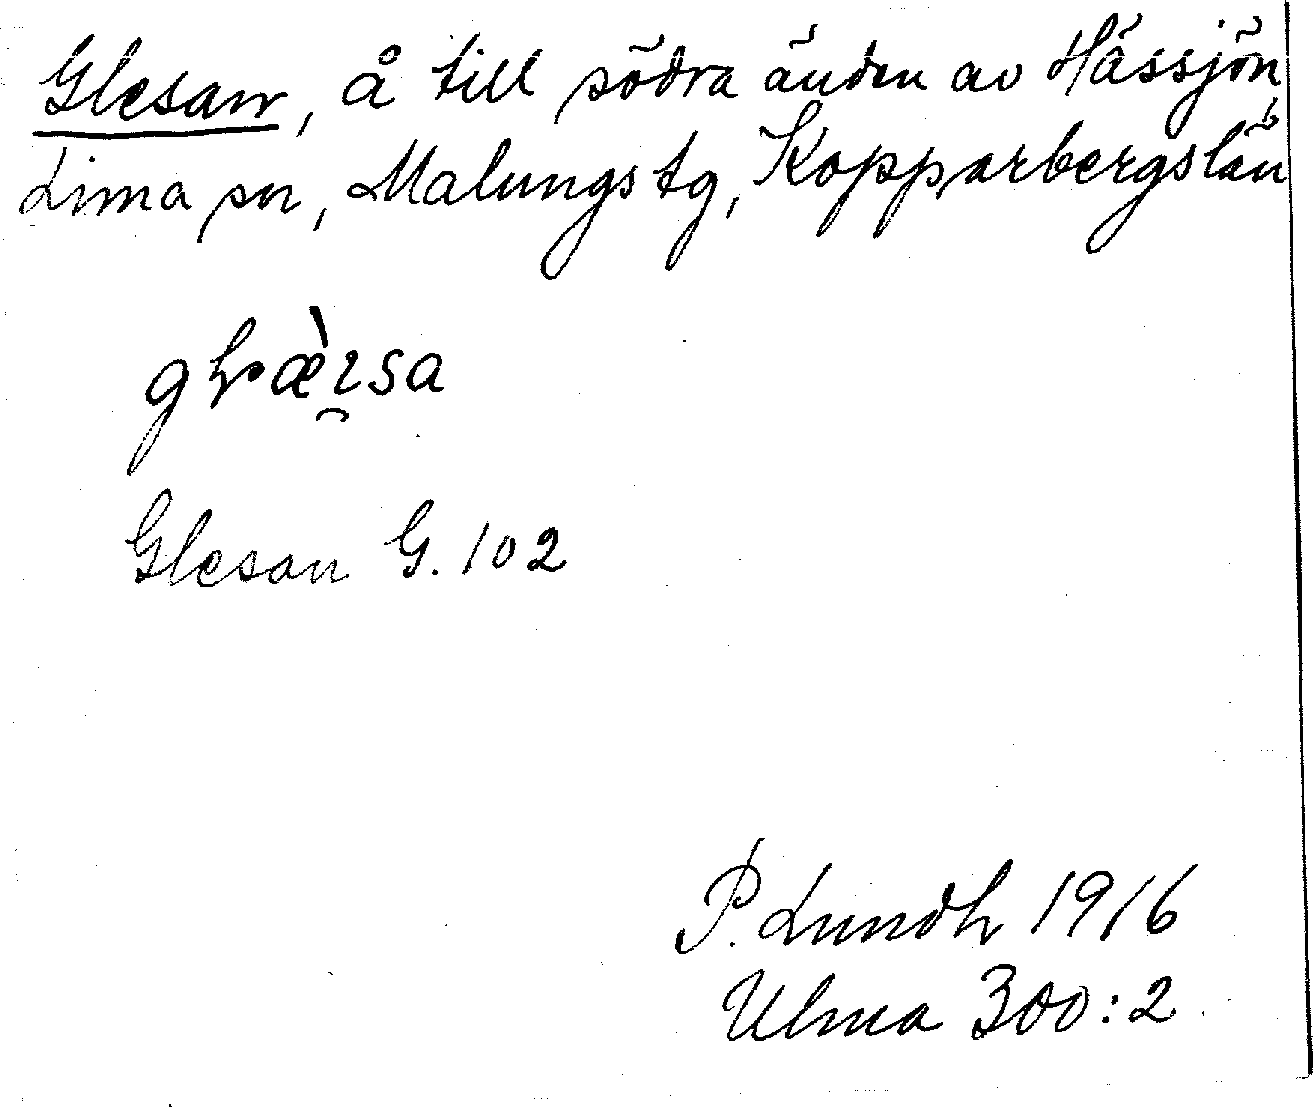 Glesan, å till södra änden av Hässjön,
Lima sn, Malungs tg, Kopparbergs län
Glesan G. 102
P. Lundh 1916
Ulma 300:2